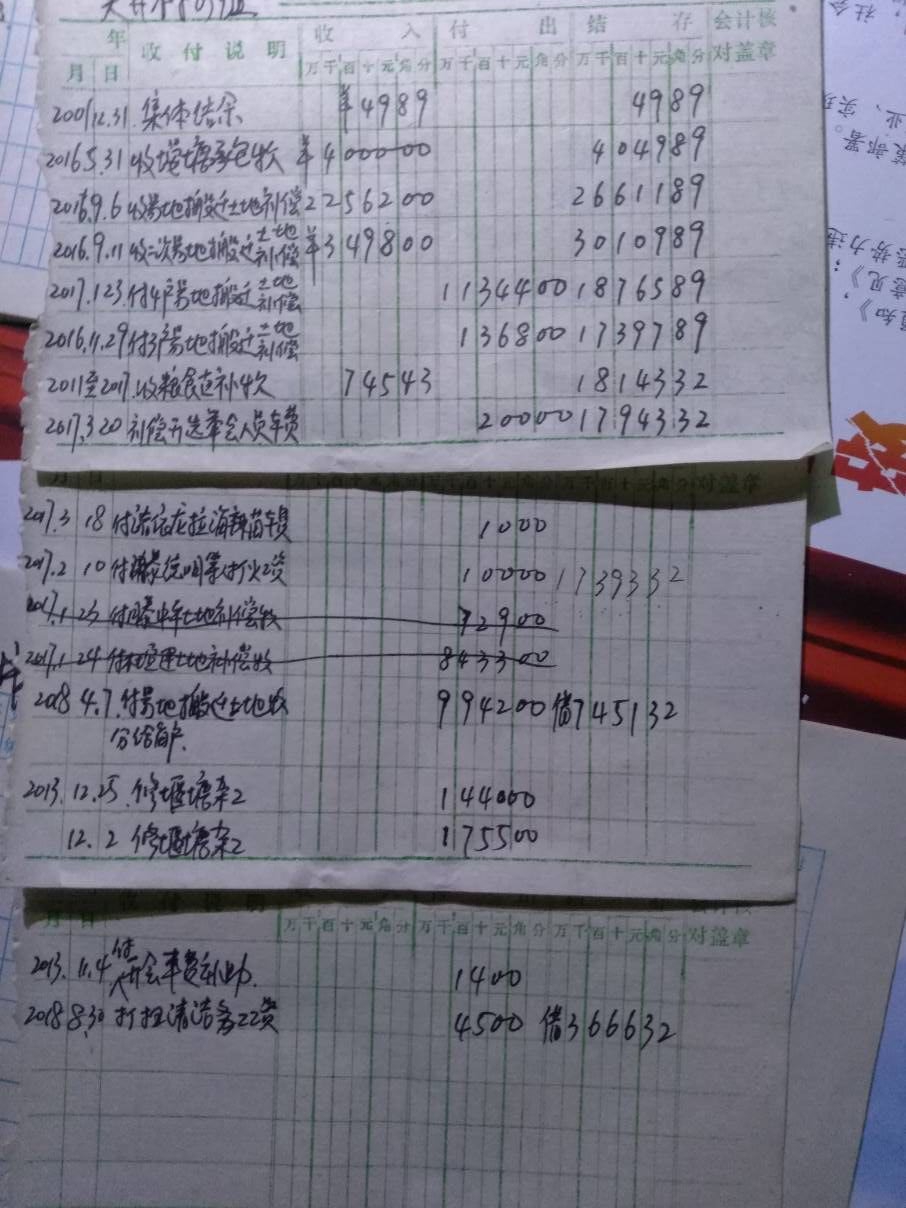 年 收付说明 收入 付出 结存 会计核
月 日 万千百十元角分 万千百十元角分 万千百十元角分 对盖章
2001.12.31. 集体结余 ¥4989 4989
2016.5.31 收堰塘承包款 ¥400000 404989
2016.9.6 收易地搬迁土地补偿 2256200 2661189
2016.9.11 收二次易地搬迁土地补偿 ¥349800 3010989
2017.1.23. 付户易地搬迁土地补偿 1134400 1876589
2016.11.29 付3户易地搬迁土地补偿 136800 1739789
2011至2017.收粮食直补款 74543 1814332
2017.3.20 补偿开选举会人员车费 20000 1794332
万千百十元角分 万千百十元角分 万千百十元角分 对盖章
2017.3 18 付 1000
2017.2 10 付 10000 1739332
2017.1 23 付 土地补偿款 72900
2017.1 24 付 土地补偿款 843300
2018 4.7. 付易地搬迁土地款 994200 借745132
分给 户.
2013.12.25. 修堰塘杂工 144000
12.2 修堰塘杂工 175500
月 日 收付说明
万千百十元角分 万千百十元角分 万千百十元角分 对盖章
2013.11.4 付开会车费补助. 1400
2018 8.30 打扫清洁务工工资 4500 借366632